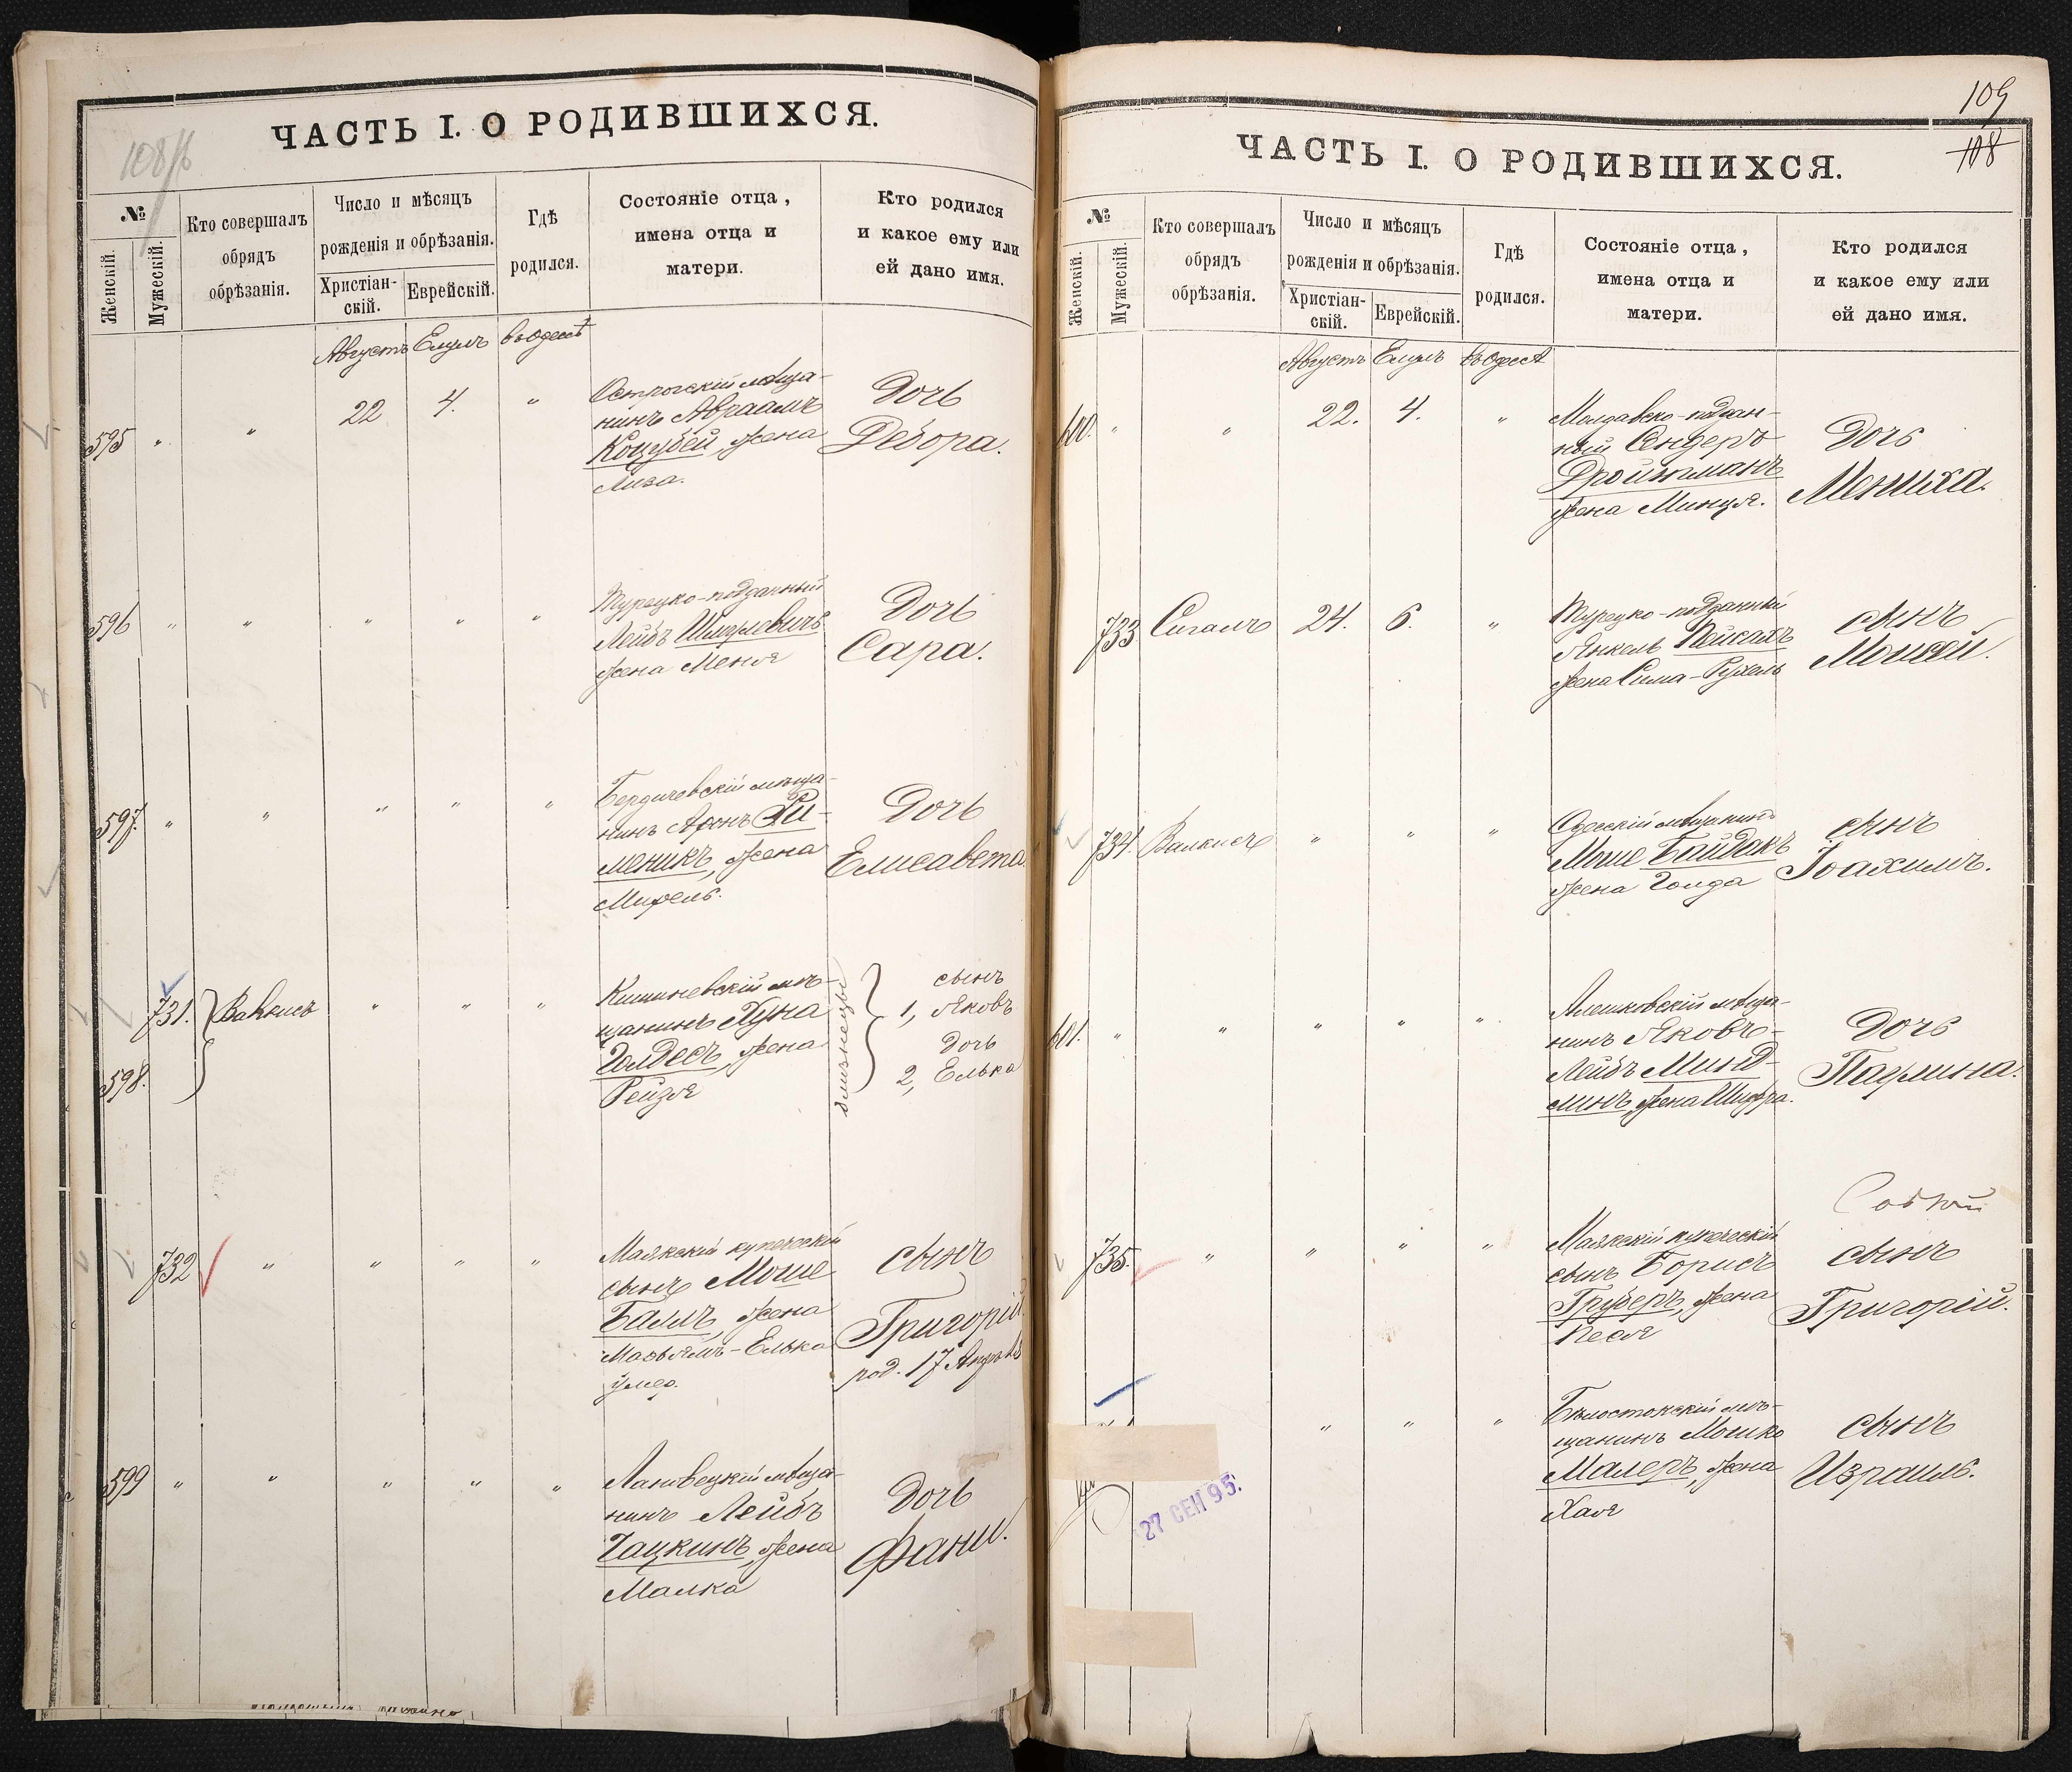 108/б
ЧАСТЬ I. О РОДИВШИХСЯ.
№
Женскій.
Мужескій.
Кто совершалъ
обрядъ
обрѣзанія.
Число и мѣсяцъ
рожденія и обрѣзанія.
Христіан-
скій.
Еврейскій.
Гдѣ
родился.
Состояніе отца,
имена отца и
матери.
Кто родился
и какое ему или
ей дано имя.
Августъ Елулъ въ Одессѣ
595 " " 22 4. "
Острогскій мѣща-
нинъ Авраамъ
Коцубей, жена
Лиза.
Дочь
Дебора.
596 " " " " "
Турецко-подданный
Лейбъ Шмулевичъ
жена Меня
Дочь
Сара.
597. " " " " "
Бердичевскій мѣща-
нинъ Аронъ
меникъ, жена
Мирель.
Дочь
Елисавета
731. Валкисъ " " "
598.
Кишиневскій мѣ-
щанинъ Хуна
Голдесъ, жена
Рейзя
близнецы
сынъ
1, Яковъ
Дочь
2, Елька
732 " " " "
Маякскій купеческій
сынъ Моше
Балъ, жена
Марьямъ-Елька
умер.
сынъ
Григорій
род. 17
599 " " " " "
Лановецкій мѣща-
нинъ Лейбъ
Чацкинъ, жена
Малка
Дочь
Фани.
109
108
ЧАСТЬ I. О РОДИВШИХСЯ.
№
Женскій.
Мужескій.
Кто совершалъ
обрядъ
обрѣзанія.
Число и мѣсяцъ
рожденія и обрѣзанія.
Христіан-
скій.
Еврейскій.
Гдѣ
родился.
Состояніе отца,
имена отца и
матери.
Кто родился
и какое ему или
ей дано имя.
Августъ Елулъ въ Одессѣ
600. " " 22. 4. "
Молдавско-поддан-
ный Сендеръ
Дройжманъ
жена Минця.
Дочь
Мениха.
733 Сигалъ 24. 6. "
Турецко-подданный
Янкель Пейсахъ
жена Сима-Рухель
сынъ
Моисей.
734. Валкисъ " " "
Одесскій мѣщанинъ
Моше Байдакъ
жена Голда
сынъ
Іоахимъ.
601. " " " " "
Алешковскій мѣща-
нинъ Яковъ-
Лейбъ Минд-
линъ, жена Шифра.
Дочь
Паулина.
735. " " " "
Маякскій купеческій
сынъ Борисъ
Груберъ, жена
Песя
сынъ
Григорій.
" " "
Бѣлостокскій мѣ-
щанинъ Мошко
Малеръ, жена
Хая
сынъ
Израиль.
27 СЕН 95.